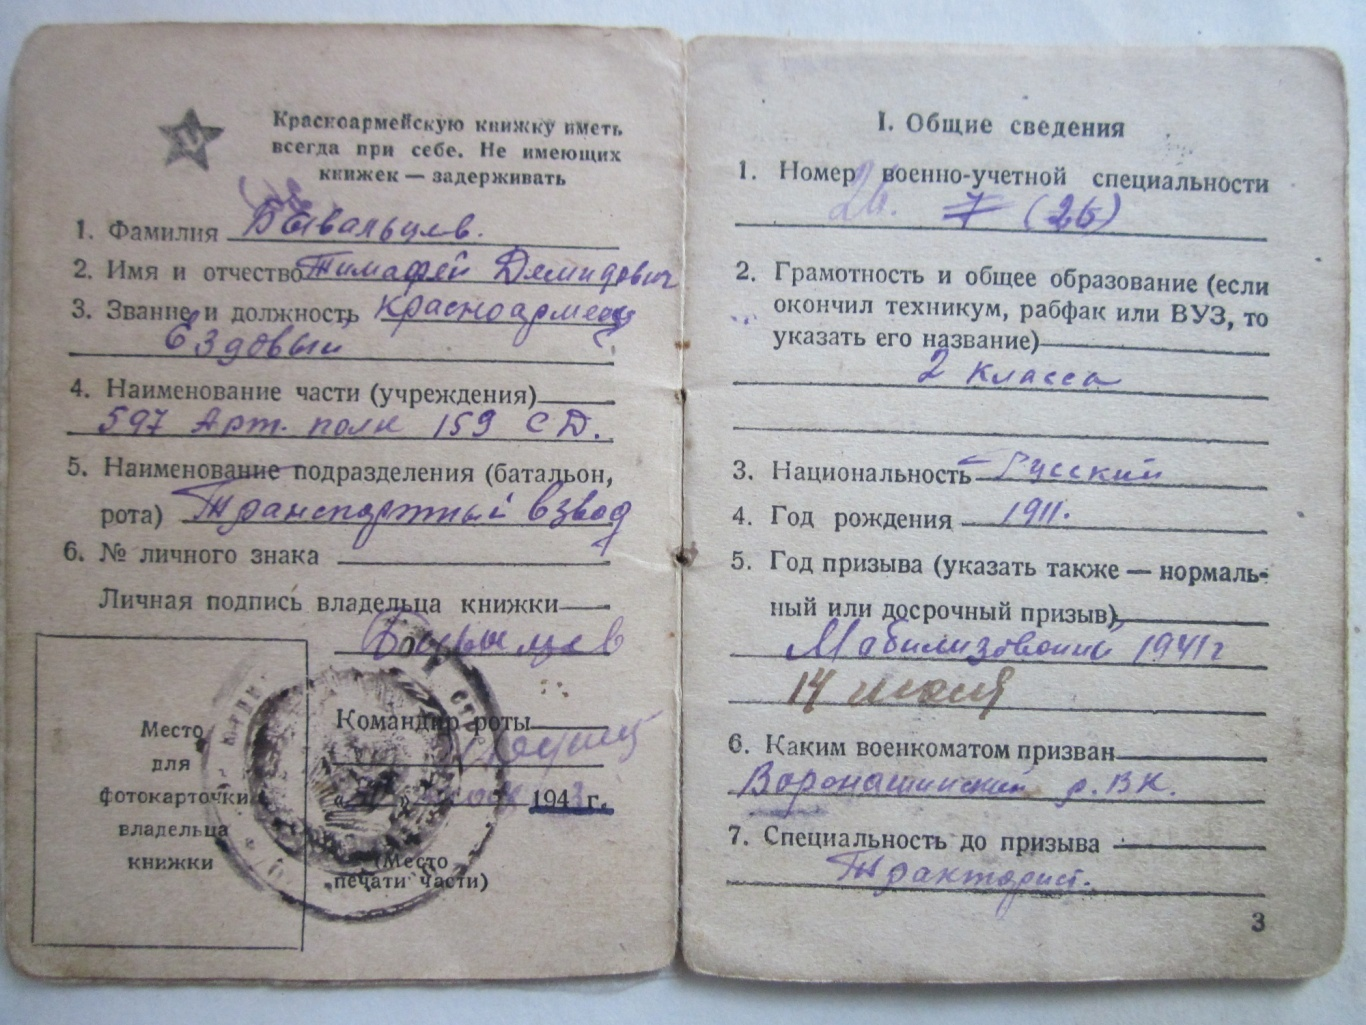 Красноармейскую книжку иметь
всегда при себе. Не имеющих
книжек — задерживать
1. Фамилия Бывальцев.
2. Имя и отчество Тимафей Демидович
3. Звание и должность Красноармеец
Ездовый
4. Наименование части (учреждения)
597 Арт. полк 159 СД.
5. Наименование подразделения (батальон,
рота) Транспортный взвод
6. № личного знака
Личная подпись владельца книжки
Бывальцев
Командир роты
1943 г.
(Место
печати части)
Место
для
фотокарточки
владельца
книжки
I. Общие сведения
1. Номер военно-учетной специальности
26. 7 (26)
2. Грамотность и общее образование (если
окончил техникум, рабфак или ВУЗ, то
указать его название)
2 класса
3. Национальность Русский
4. Год рождения 1911.
5. Год призыва (указать также — нормаль-
ный или досрочный призыв)
Мабилизованый 1941 г
14 июля
6. Каким военкоматом призван
р. ВК.
7. Специальность до призыва
Тракторист.
3